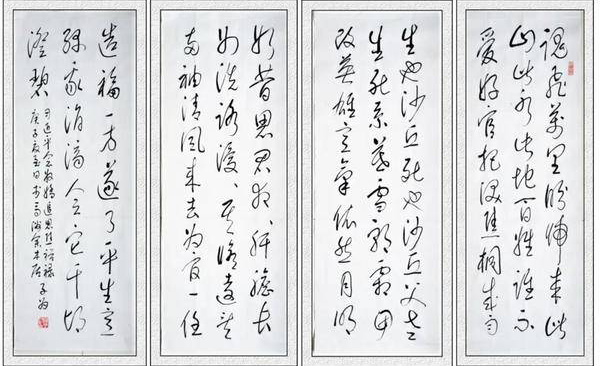 魂飛萬里盼归来此
山此水此地百姓谁不
爱好官把泪焦桐成雨
生也沙丘死也沙丘父老
生死系暮雪朝霜毋
改英雄意气依然月明
如昔思君夜夜肝胆长
如洗路漫漫其修远矣
两袖清风来去为官一任
造福一方遂了平生意
绿我涓滴会它千顷
澄碧
习近平念奴娇追思焦裕禄
庚子夏